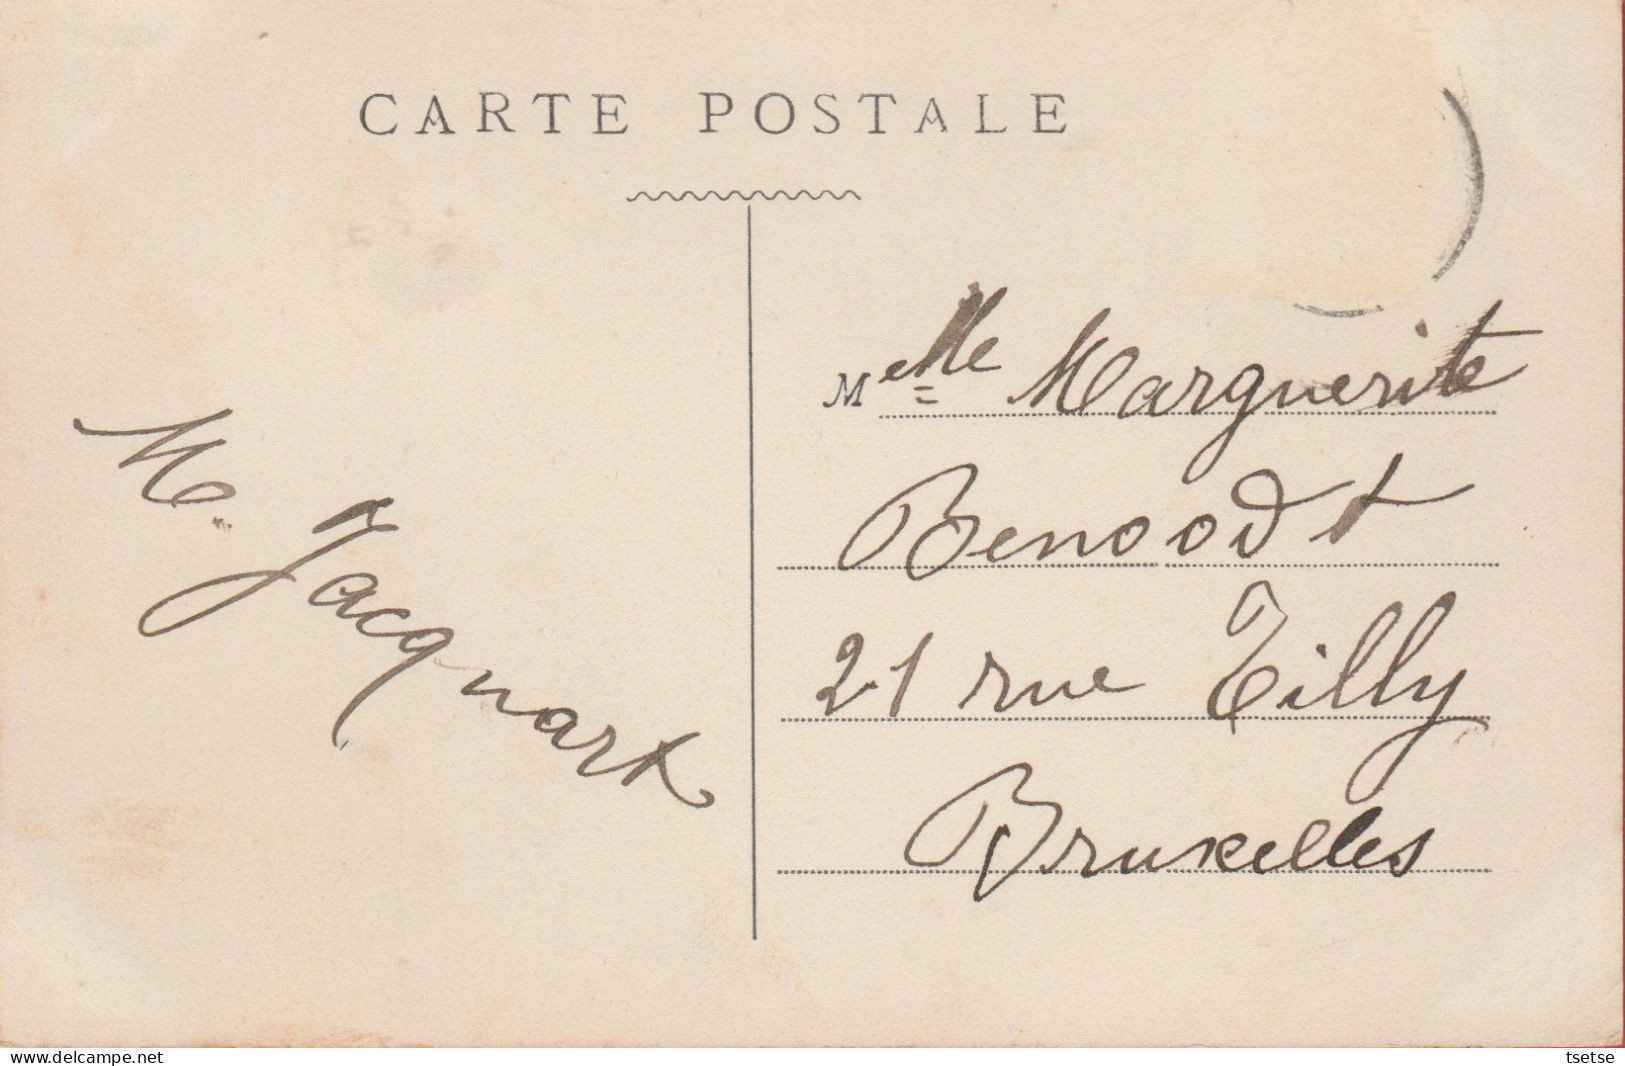 CARTE POSTALE
M. Jacquart
Melle Marguerite
Benoodt
21 rue Tilly
Bruxelles
www.delcampe.net
tsetse